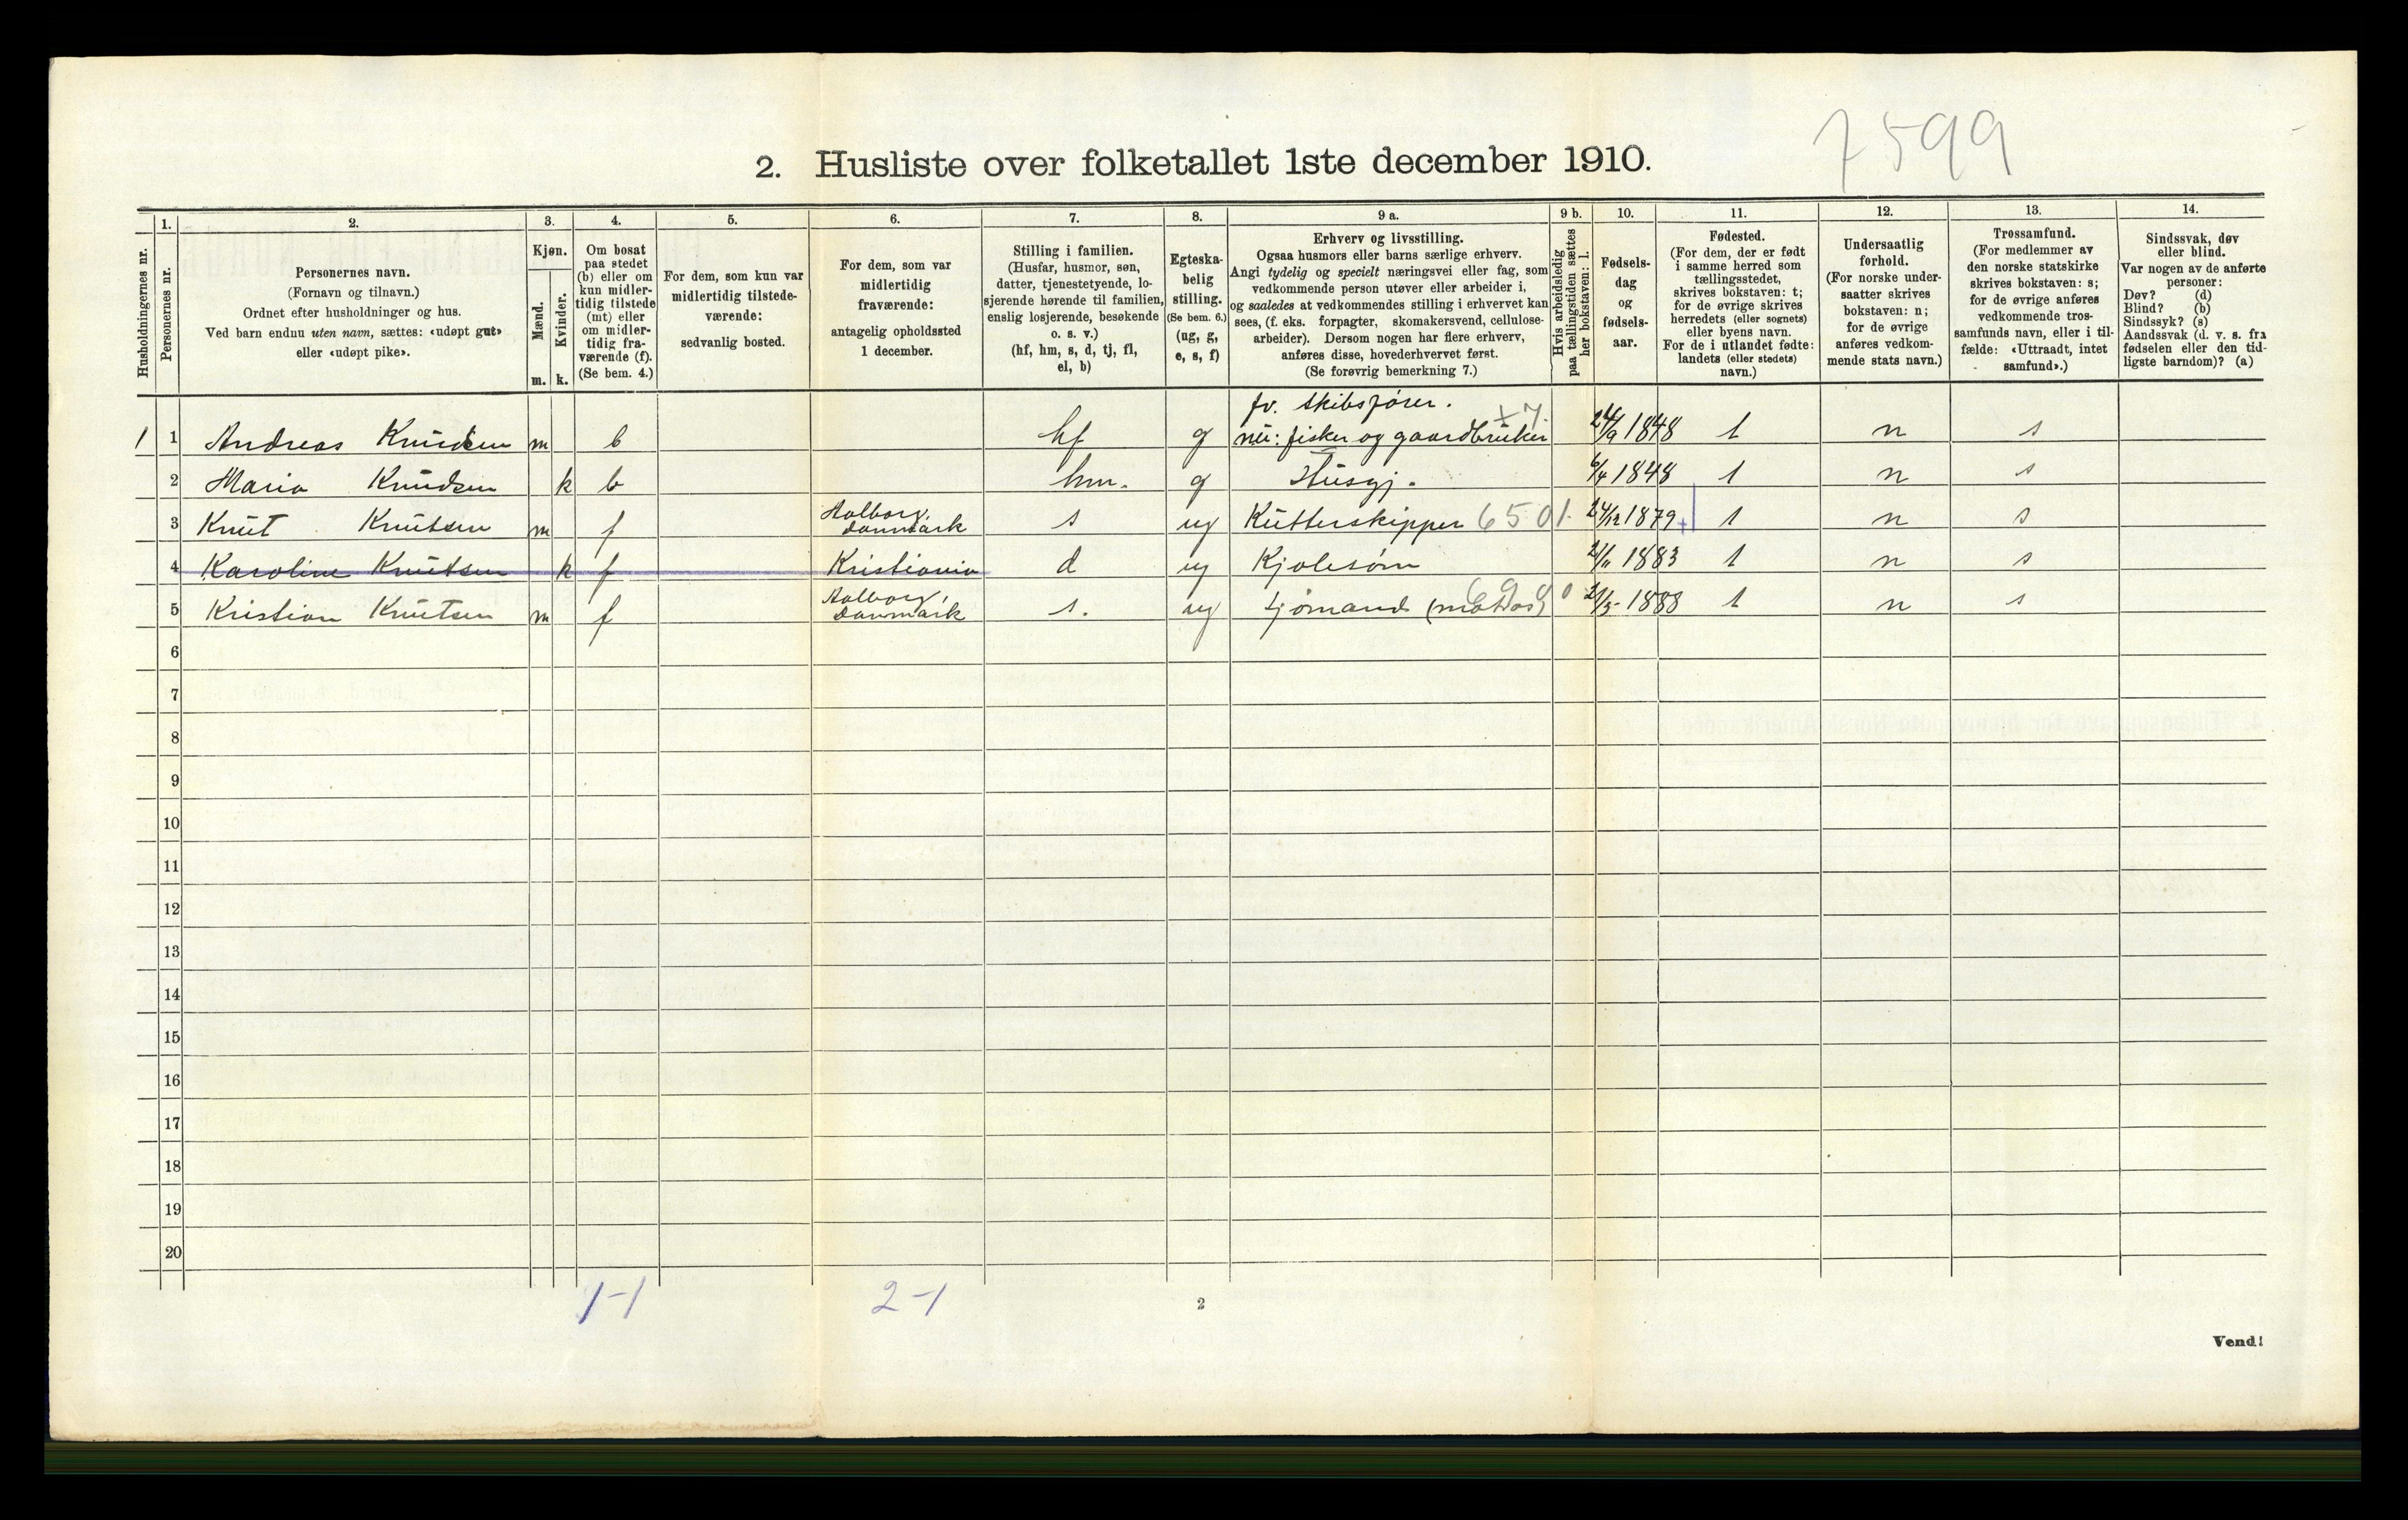 7599
2. Husliste over folketallet 1ste december 1910.
Husholdningernes nr.
1.
Personernes nr.
2.
Personernes navn.
(Fornavn og tilnavn.)
Ordnet efter husholdninger og hus.
Ved barn endnu uten navn, sættes: «udøpt gut»
eller «udøpt pike».
3.
Kjøn.
Mænd.
Kvinder.
m. k.
4.
Om bosat
paa stedet
(b) eller om
kun midler-
tidig tilstede
(mt) eller
om midler-
tidig fra-
værende (f).
(Se bem. 4.)
5.
For dem, som kun var
midlertidig tilstede-
værende:
sedvanlig bosted.
6.
For dem, som var
midlertidig
fraværende:
antagelig opholdssted
1 december.
7.
Stilling i familien.
(Husfar, husmor, søn,
datter, tjenestetyende, lo-
sjerende hørende til familien,
enslig losjerende, besøkende
o. s. v.)
(hf, hm, s, d, tj, fl,
el, b)
8.
Egteska-
belig
stilling.
(Se bem. 6.)
(ug, g,
e, s, f)
9 a.
Erhverv og livsstilling.
Ogsaa husmors eller barns særlige erhverv.
Angi tydelig og specielt næringsvei eller fag, som
vedkommende person utøver eller arbeider i,
og saaledes at vedkommendes stilling i erhvervet kan
sees, (f. eks. forpagter, skomakersvend, cellulose-
arbeider). Dersom nogen har flere erhverv,
anføres disse, hovederhvervet først.
(Se forøvrig bemerkning 7.)
9 b.
Hvis arbeidsledig
paa tællingstiden sættes
her bokstaven: l.
10.
Fødsels-
dag
og
fødsels-
aar.
11.
Fødested.
(For dem, der er født
i samme herred som
tællingsstedet,
skrives bokstaven: t;
for de øvrige skrives
herredets (eller sognets)
eller byens navn.
For de i utlandet fødte:
landets (eller stedets)
navn.)
12.
Undersaatlig
forhold.
(For norske under-
saatter skrives
bokstaven: n;
for de øvrige
anføres vedkom-
mende stats navn.)
13.
Trossamfund.
(For medlemmer av
den norske statskirke
skrives bokstaven: s;
for de øvrige anføres
vedkommende tros-
samfunds navn, eller i til-
fælde: «Uttraadt, intet
samfund».)
14.
Sindssvak, døv
eller blind.
Var nogen av de anførte
personer:
Døv? (d)
Blind? (b)
Sindssyk? (s)
Aandssvak (d. v. s. fra
fødselen eller den tid-
ligste barndom)? (a)
fv. skibsfører.
1 1 Andreas Knudsen m b hf g nu: fisker og gaardbruker 24/9 1848 t n s
2 Maria Knudsen k b hm. g Husgj. 6/4 1848 t n s
3 Knut Knutsen m f Aalborg, Danmark s ug Kutterskipper 6501. 24/12 1879 t n s
4 Karoline Knutsen k f Kristiania d ug Kjolesøm 2/11 1883 t n s
5 Kristian Knutsen m f Aalborg, Danmark s. ug sjømand (matros) 21/5- 1888 t n s
6
7
8
9
10
11
12
13
14
15
16
17
18
19
20
1-1
2-1
2
Vend!